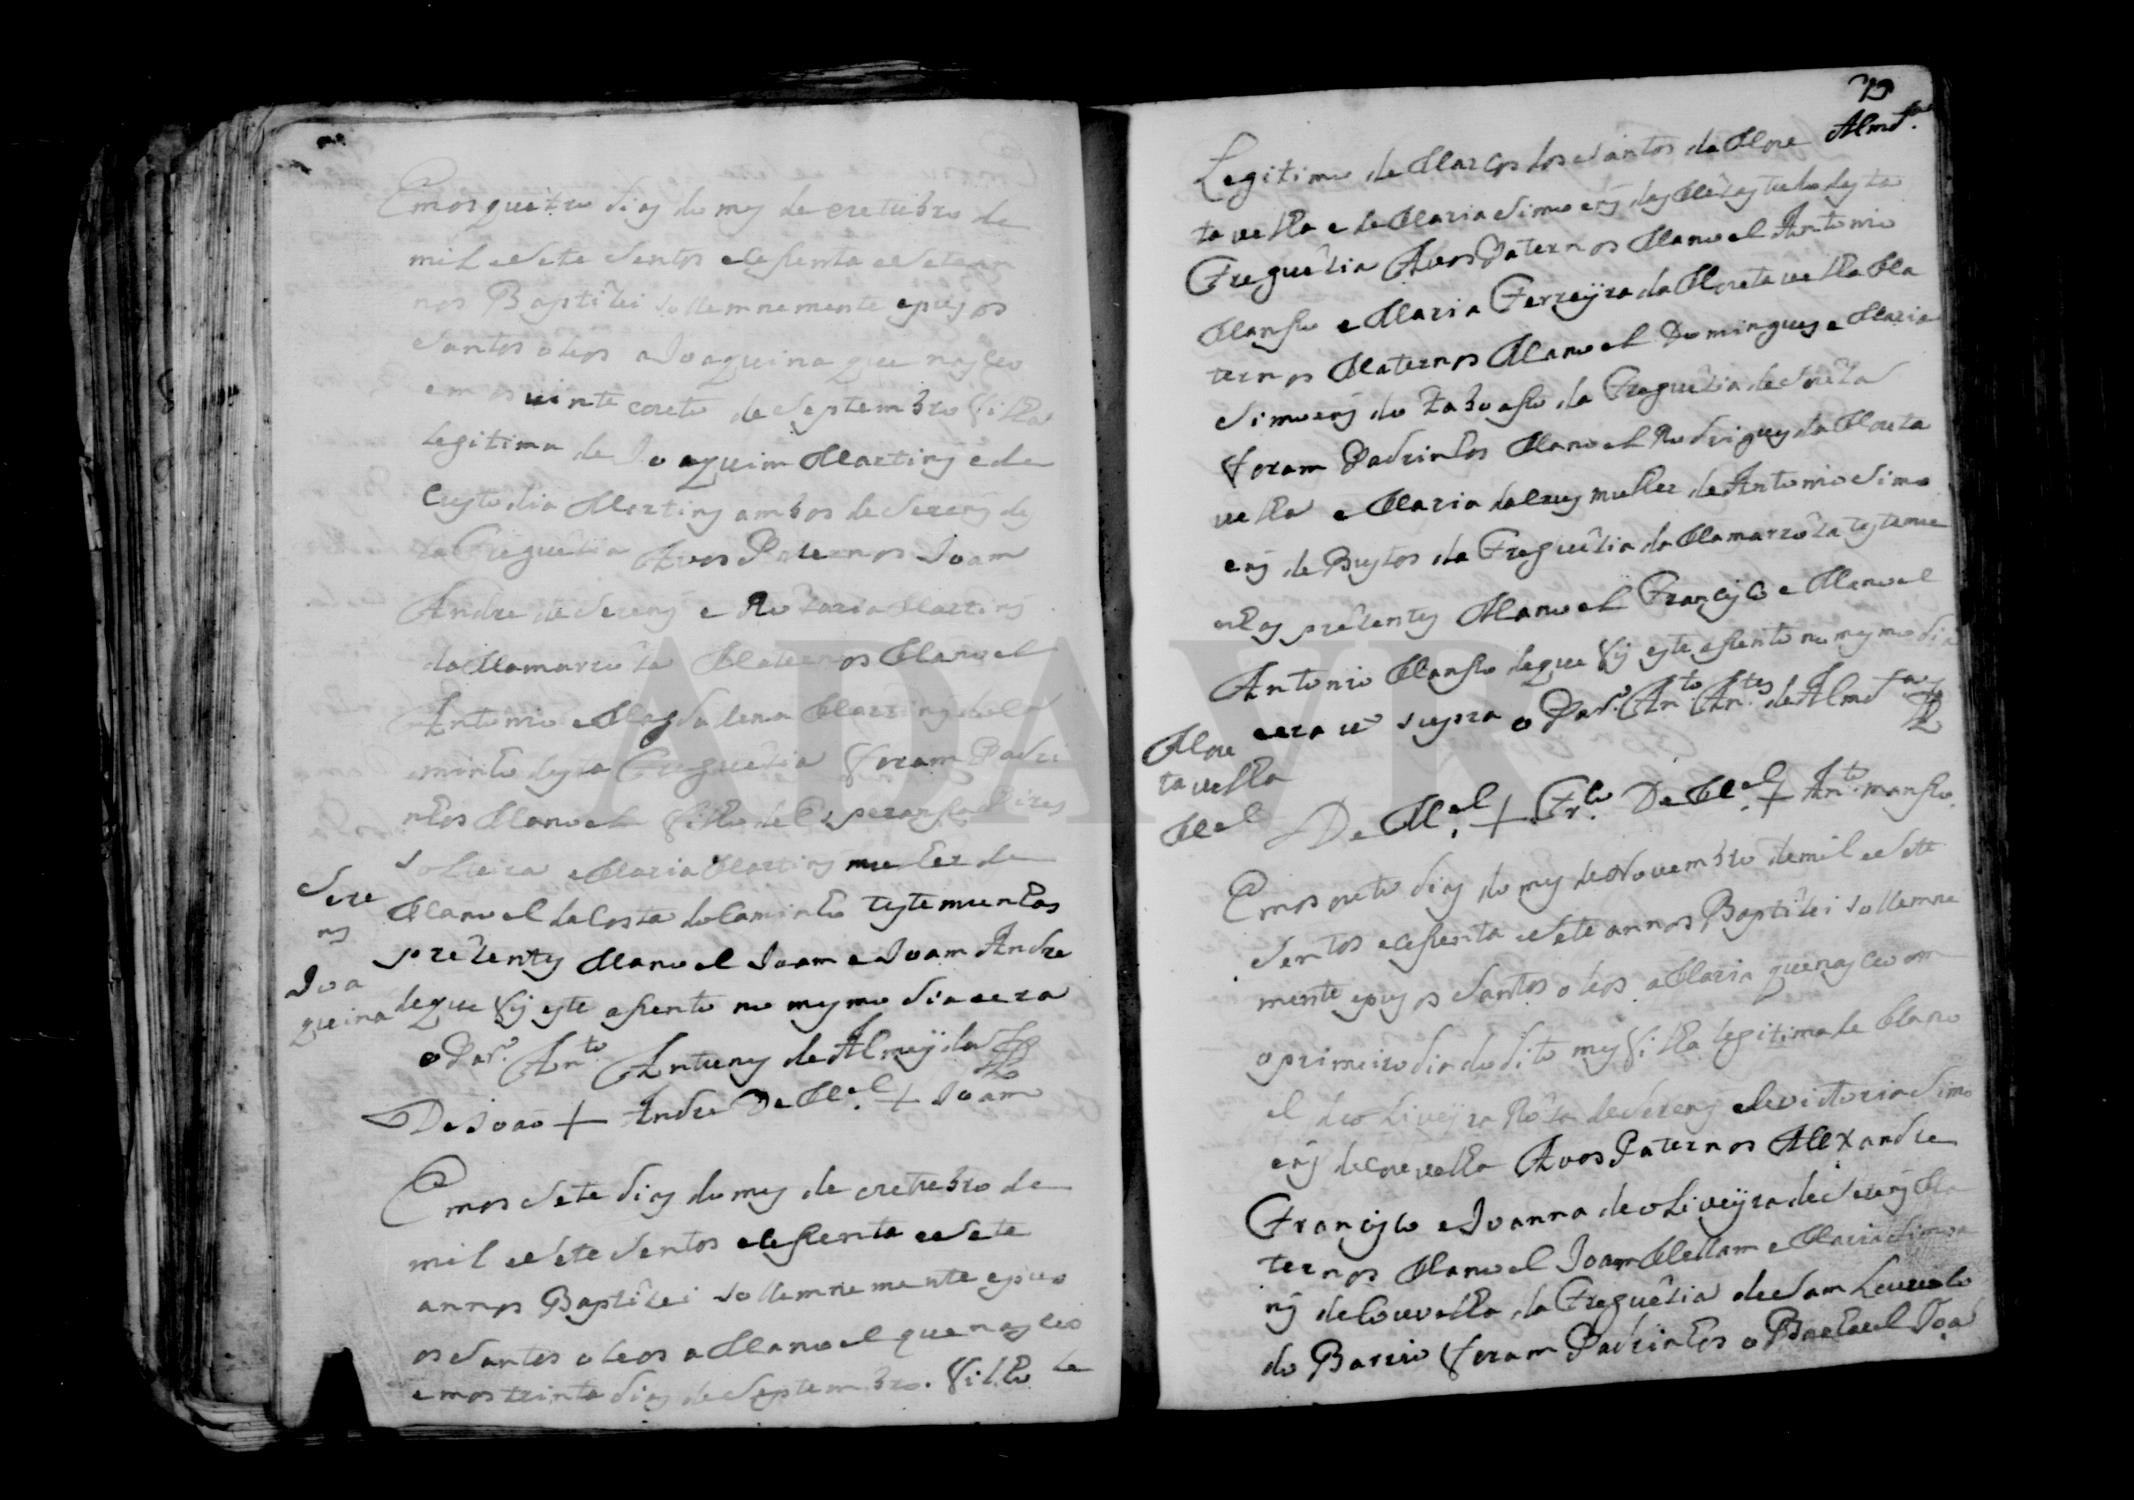 Emos quatro dias do mes de outubro de
mil e sete sentos e cessenta e sete an
nos Baptizei sollemnemente e pus os
santos oleos a Joaquina que nasceo
em os vinte e outo de septembro filha
legitima de Joaquim Martins e de
Custodia Martins ambos de Serens des
ta Freguezia Avos Paternos Joam
Andre de Serens e Rozaria Martins
da Mamarroza Maternos Manoel
Antonio e Magdalena Martins do Ca
minho desta Freguezia foram Padri
nhos Manoel filho de Esperansa Pires
solteira e Maria Martins mulher de
Manoel da Costa do Caminho testemunhas
prezentes Manoel Joam e Joam Andre
de que fis este assento no mesmo dia e era
o Par.º Ant.º Antunes de Almeijda
De Joaõ + Andre De M.el + Joam
Sere
ns
Joa
quina
Emos sete dias do mes de outubro de
mil e sete sentos e cessenta e sete
annos Baptizei sollemnemente e pus
os santos oleos a Manoel que nasceo
emos trinta dias de septembro. filho le
Almd.ª
Legitimo de Marcos dos Santos da Mou
ta velha e de Maria Simoens das desta
Freguezia Avos Paternos Manoel Antonio
Manso e Maria Ferreijra da Mouta velha Ma
ternos Maternos Manoel Domingues e Maria
Simoens do Taboaso da Freguezia de Soza
foram Padrinhos Manoel Rodrigues da Mouta
velha e Maria da Crus mulher de Antonio Simo
ens de Bustos da Freguezia da Mamarroza testemu
nhas prezentes Manoel Francisco e Manoel
Antonio Manso de que fis este assento no mesmo dia
e era ut supra o Par.º Ant.º An.tes de Almd.ª
Mou
ta velha
M.el
De M.el + Fr.co De M.el + An.to manso.
Emos outo dias do mes de Novembro de mil e sete
sentos e cessenta e sete annos Baptizei sollemne
mente e pus os santos oleos a Maria que nasceo em
o primeiro dia do dito mes filha legitima de Mano
el de oliveijra Roza de Serens e de victoria Simo
ens de Couvelha Avos Paternos Allexandre
Francisco e Joanna de oliveijra de Serens Ma
ternos Manoel Joam Mellam e Maria Simoe
ns de Couvelha da Freguezia de Sam Lourenço
do Barrio foram Padrinhos o Joa